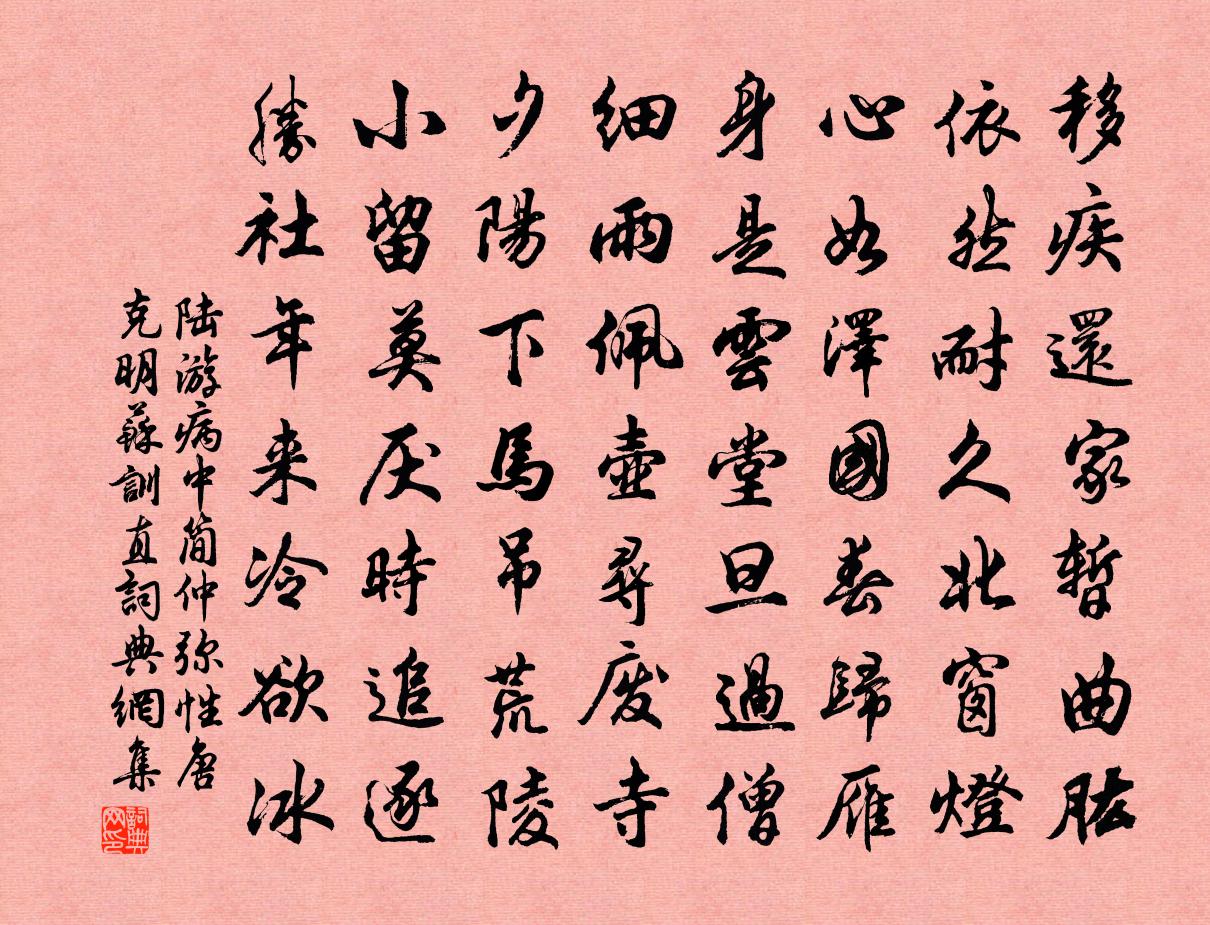 移疾還家暫曲肱
依然耐久北窗燈
心如澤國春歸雁
身是雲堂旦過僧
細雨佩壺尋废寺
夕陽下馬吊荒陵
小留莫厌時追逐
勝社年来冷欲冰
陆游病中简仲弥性唐
克明蘇訓直詞典網集
詞典网印